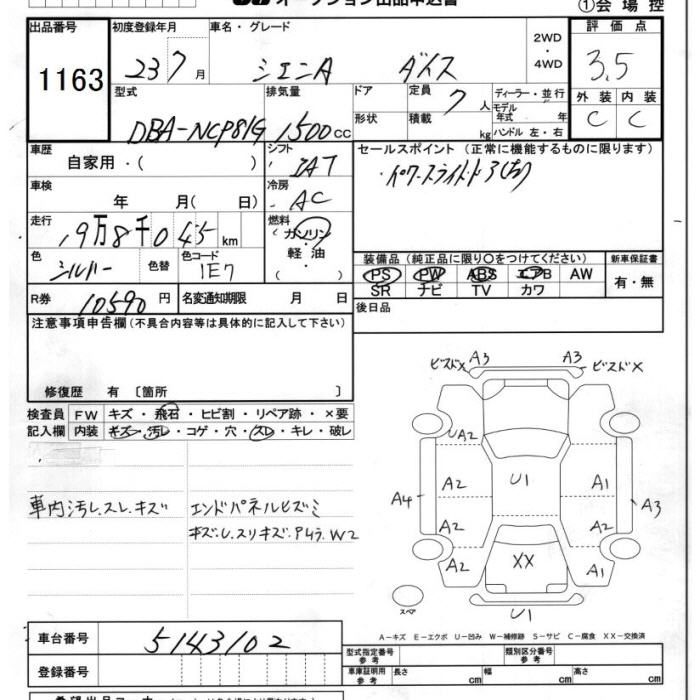 オークション出品申込書 ①会場控
出品番号 初度登録年月 車名・グレード 2WD 評価点
1163 23 7月 シエンタ ダイス ・4WD 3.5
型式 排気量 ドア 定員 7人 ディーラー・並行 外装 内装
DBA-NCP81G 1500cc 形状 積載 kg モデル年式 年 C C
ハンドル 左・右
車歴 シフト セールスポイント(正常に機能するものに限ります)
自家用・( ) IAT ・パワースライドドア(左)
車検 冷房
年 月( 日) AC
走行 燃料
19万8千045km (ガソリン・
色 色替 色コード 軽油
シルバー 1E7 ( )
装備品(純正品に限り〇をつけてください) 新車保証書
PS PW ABS エアB AW 有・無
SR ナビ TV カワ
R券 10590円 名変通知期限 月 日 後日品
注意事項申告欄(不具合内容等は具体的に記入して下さい)
修復歴 有 〔箇所 〕
検査員 FW キズ・飛石・ヒビ割・リペア跡・×要
記入欄 内装 キズ・汚レ・コゲ・穴・スレ・キレ・破レ
車内汚レ.スレ.キズ エンドパネルヒズミ
キズ.U.スリキズ.
W2
ビスドX A3 A3 ビスドX
UA2
A2 U1 A1
A4 A3
A2 A2
A2 XX A1
スペア U1
A-キズ E-エクボ U-凹み W-補修跡 S-サビ C-腐食 XX-交換済
車台番号 5143102
登録番号
型式指定番号 参考 類別区分番号 参考
車庫証明用 参考 長さ cm 幅 cm 高さ cm
希望出品コーナー